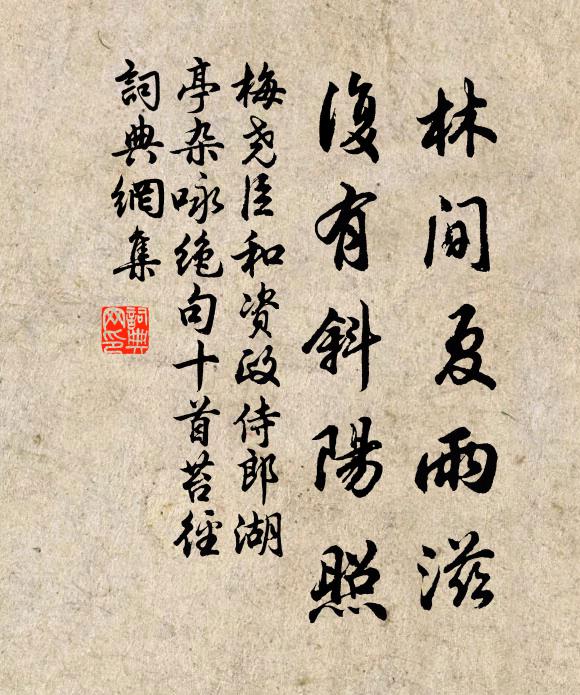 林間夏雨滋
復有斜陽照
梅尧臣和资政侍郎湖
亭杂咏绝句十首苔徑
詞典網集
詞典網印